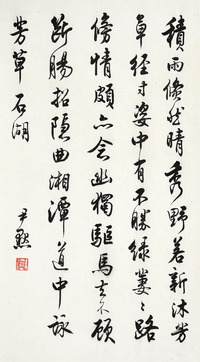 積雨倏然晴秀野若新沐芳
草経寸姿中有不勝綠萋〻路
傍情頗亦會幽獨驅馬去不顧
斷腸招隱曲湘潭道中詠
芳草 石湖
尹默